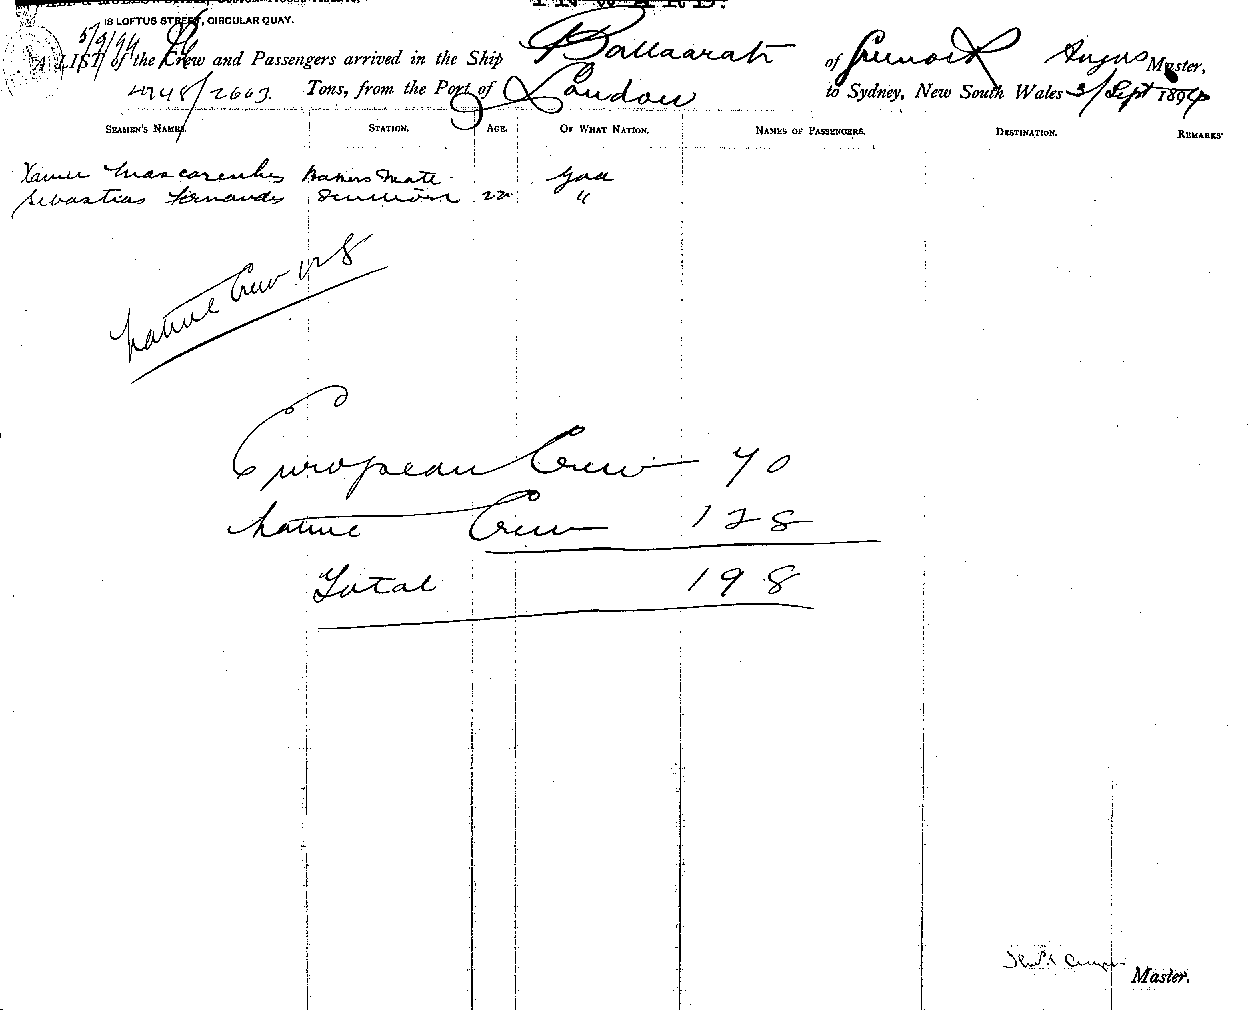 INWARD.
18 LOFTUS STREET, CIRCULAR QUAY.
5/9/94
A LIST of the Crew and Passengers arrived in the Ship Ballaarat of Greenock Angus Master,
4748/2663. Tons, from the Port of London to Sydney, New South Wales 3/Sept 1894
SEAMEN'S NAMES. STATION. AGE. OF WHAT NATION. NAMES OF PASSENGERS. DESTINATION. REMARKS.
Xavier Mascarenhes Bakers Mate Goa
Sebastiao Fernandes 22 "
Native Crew 128
European Crew 70
Native Crew 128
Total 198
Master.